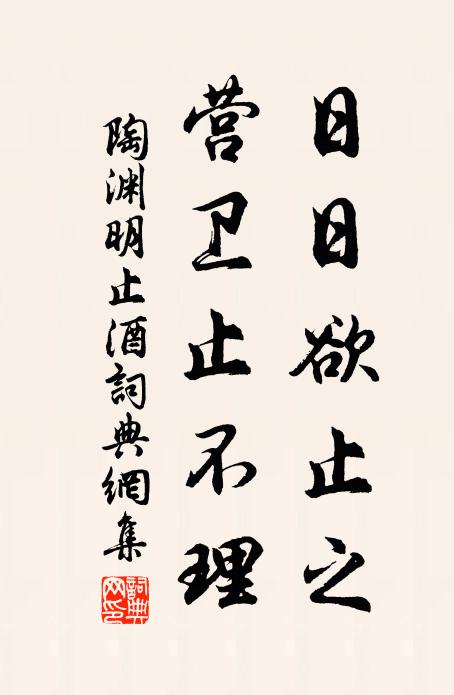 日日欲止之
营卫止不理
陶渊明止酒詞典網集
詞典网印